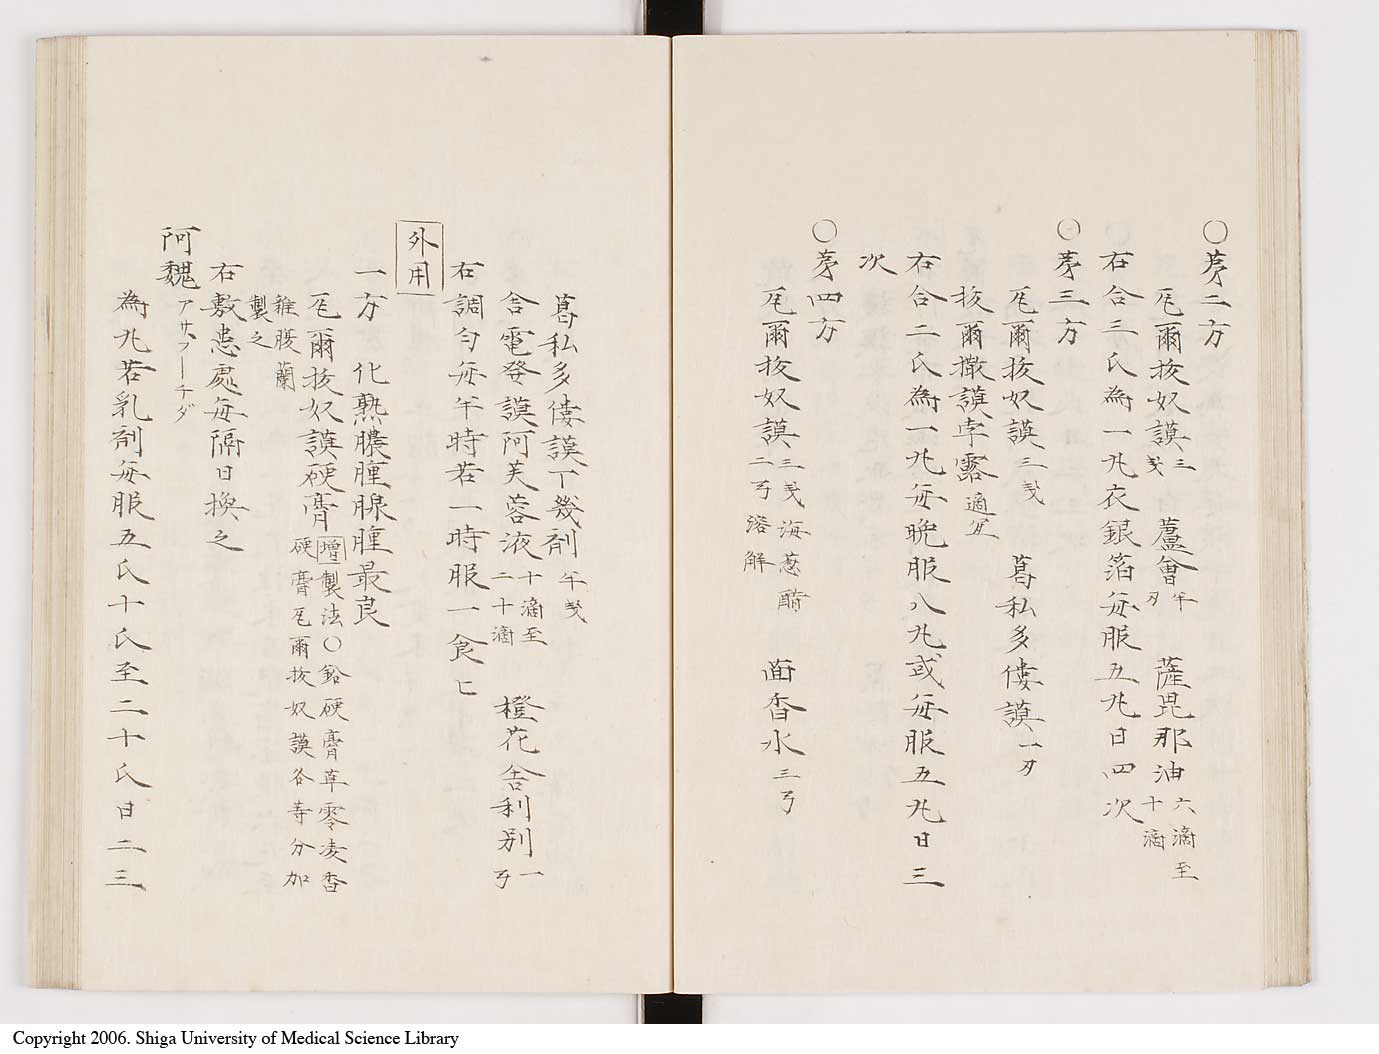 ○苐二方
瓦爾抜奴謨三戔 蘆會半刄 薩毘那油六滴至十滴
右合三氏為一丸衣銀箔毎服五丸日四次
○苐三方
瓦爾抜奴謨三戔 葛私多僂謨一刄
抜爾撒謨孛露適宜
右合二氏為一丸毎晩服八丸或毎服五丸日三
次
○苐四方
瓦爾抜奴謨三戔海葱醋二弓溶解 茴香水三弓
葛私多僂謨丁幾剤半戔
舎電登謨阿芙蓉液十滴至二十滴 橙花舎利別一弓
右調匀毎半時若一時服一食匕
外用
一方 化熟膿腫腺腫最良
瓦爾抜奴謨硬膏増製法○鉛硬膏草零凌香
硬膏瓦爾抜奴謨各等分加
雞腹蘭
製之
右敷患處毎隔日換之
阿魏アサフーチダ
為丸若乳剤毎服五氏十氏至二十氏日二三
Copyright 2006. Shiga University of Medical Science Library